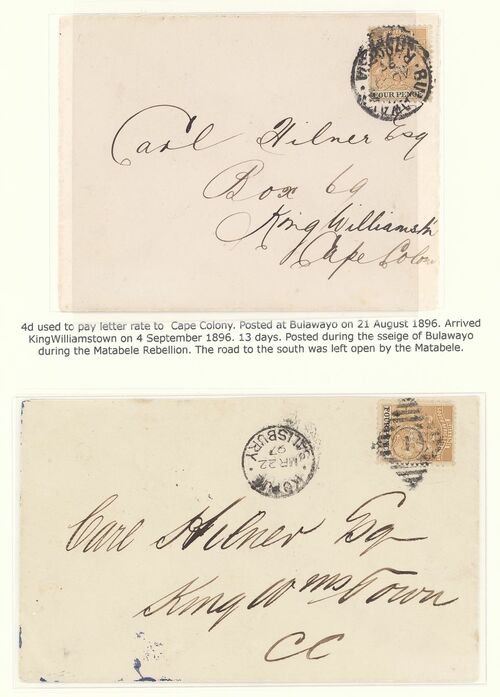 FOUR PENCE
Carl Hilner Esq
Box 69
King Williamstn
Cape Colony
4d used to pay letter rate to Cape Colony. Posted at Bulawayo on 21 August 1896. Arrived
KingWilliamstown on 4 September 1896. 13 days. Posted during the sseige of Bulawayo
during the Matabele Rebellion. The road to the south was left open by the Matabele.
SALISBURY
MR 22
97
Carl Hilner Esq
King Wms Town
CC